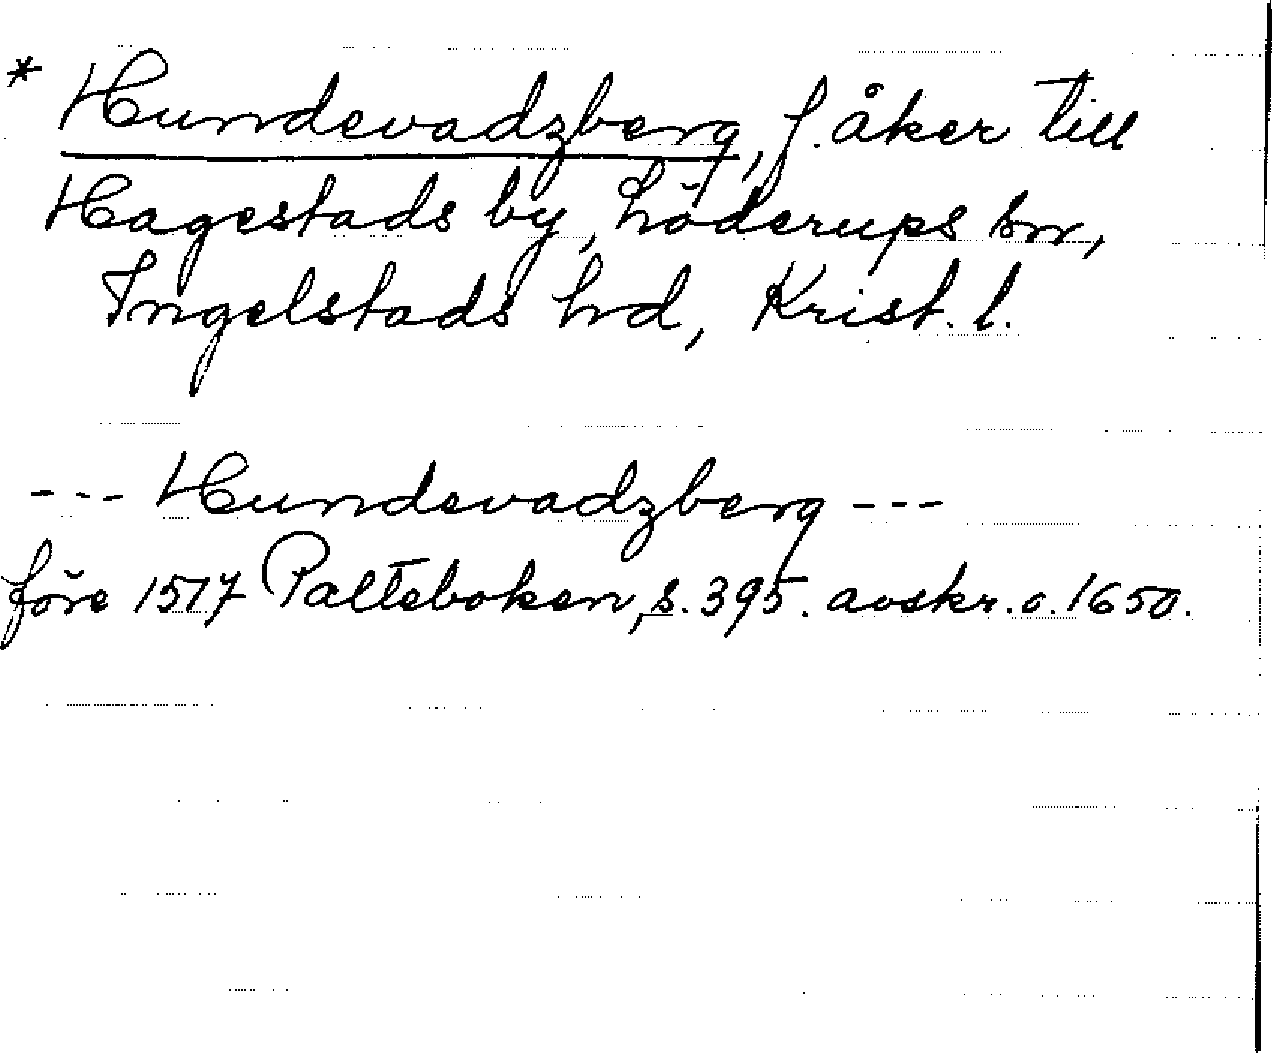 * Hundevadzberg, f. åker till
Hagestads by, Löderups sn,
Ingelstads hd, Krist. l.
--- Hundevadzberg ---
före 1517 Palteboken, s. 395. avskr. c. 1650.